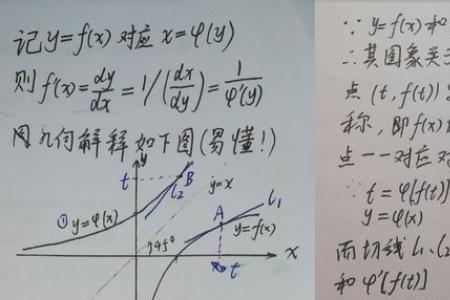 记y=f(x)对应 x=φ(y)
则 f'(x)=dy/dx=1/(dx/dy)=1/φ'(y)
用几何解释如下图(易懂!)
y
t
B
l₂
y=x
①y=φ(x)
A
l₁
y=f(x)
45°
x
x₀
t
∵ y=f(x)和
∴其图象关于
点(t,f(t))
称,即f(x)
点一一对应
∵ t=φ[f(t)]
y=φ(x)
而切线l₁、l₂
和φ'[f(t)]